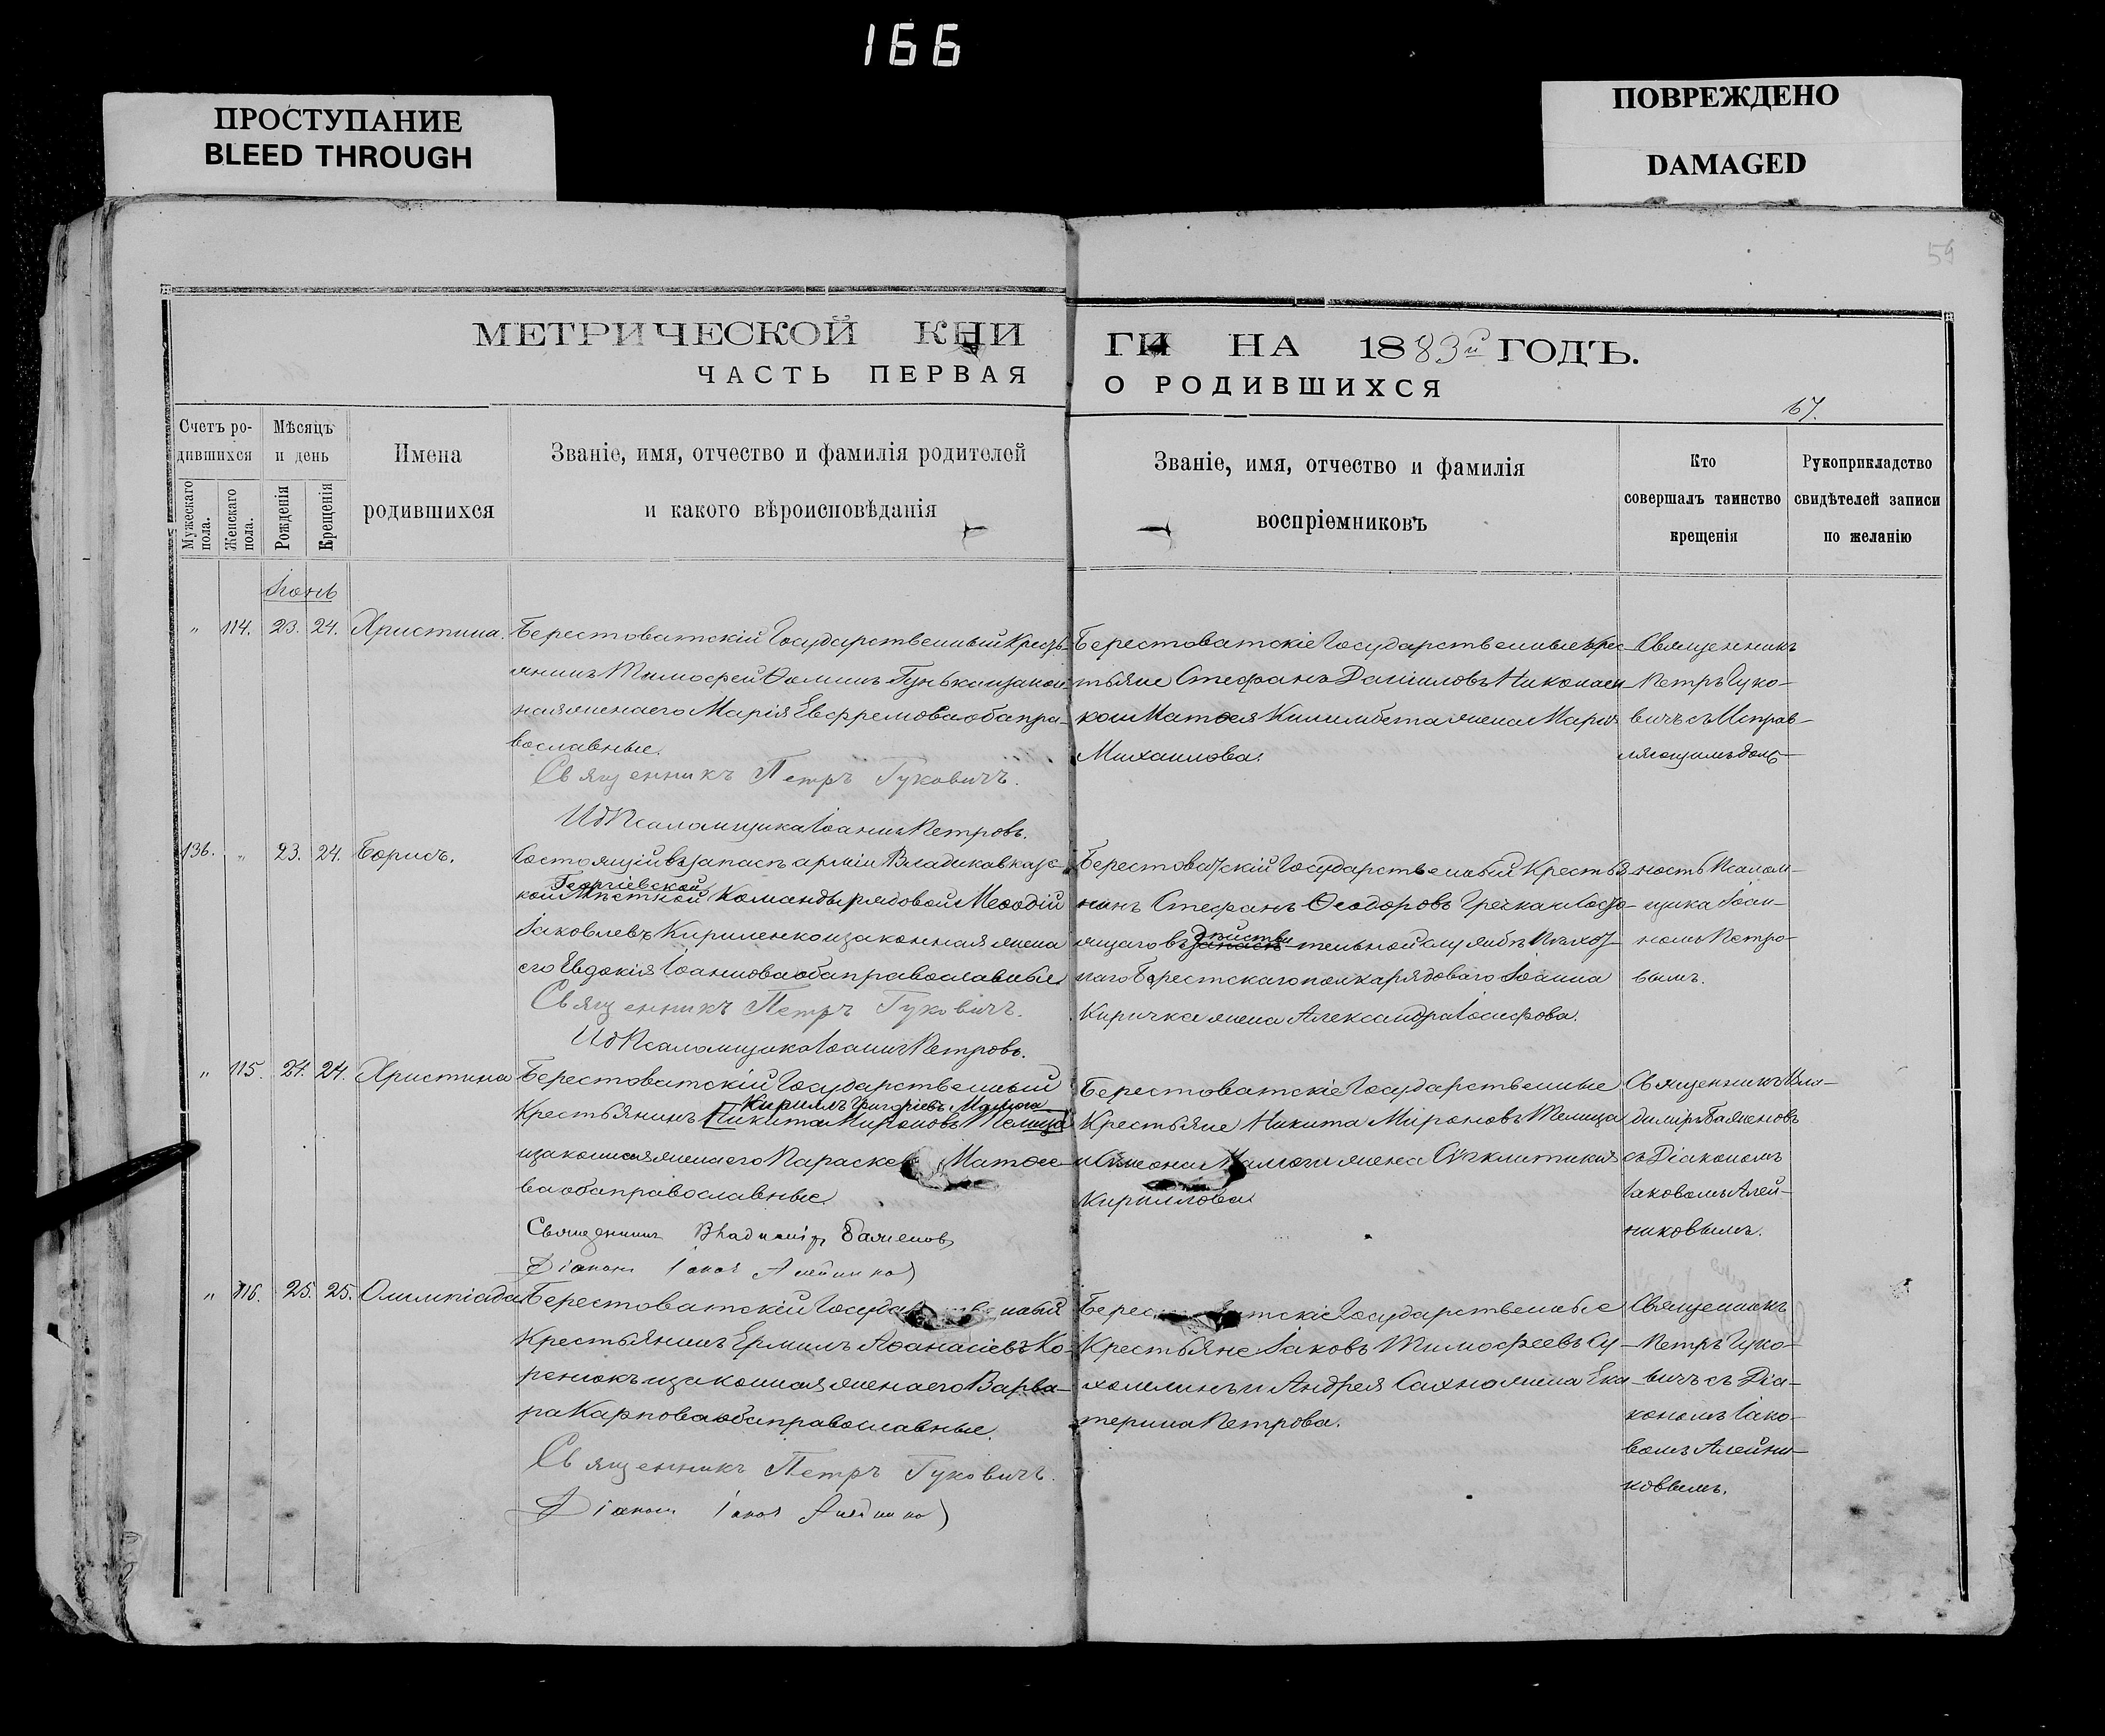 166
ПРОСТУПАНИЕ
BLEED THROUGH
ПОВРЕЖДЕНО
DAMAGED
59
МЕТРИЧЕСКОЙ КНИ
ГИ НА 1883й ГОДЪ.
ЧАСТЬ ПЕРВАЯ
О РОДИВШИХСЯ
167.
Счетъ ро-
дившихся
Мужескаго пола.
Женскаго пола.
Мѣсяцъ
и день
Рожденія
Крещенія
Имена
родившихся
Званіе, имя, отчество и фамилія родителей
и какого вѣроисповѣданія
Званіе, имя, отчество и фамилія
воспріемниковъ
Кто
совершалъ таинство
крещенія
Рукоприкладство
свидѣтелей записи
по желанію
Іюнь
" 114. 23. 24. Христина.
Берестоватскій Государственный Кресть-
янинъ Тимофей Ѳоминъ Гунька и закон-
ная жена его Марія Евфремова оба пра-
вославные.
Священникъ Петръ Гуковичъ.
Ид Псаломщика Іоаннъ Петровъ.
Берестоватскіе Государственные крес-
тьяне Стефанъ Даниловъ Николаен-
ко и Матѳея Килимбета жена Марія
Михаилова.
Священникъ
Петръ Гуко-
вичъ съ Исправ-
ляющимъ долж-
136. " 23. 24. Борисъ.
Состоящій въ запасѣ арміи Владикавказс-
Георгіевской
кой Мѣстной Команды рядовой Меѳодій
Іаковлевъ Кириленко и законная жена
его Евдокія Іоаннова оба православные.
Священникъ Петръ Гуковичъ.
Ид Псаломщика Іоаннъ Петровъ.
Берестоватскій Государственный Крестья-
нинъ Стефанъ Ѳеодоровъ Гречка и Состо-
дѣйстви
ящаго въ запасѣ тельной службѣ Пѣхот-
наго Берестскаго полка рядоваго Іоанна
Киричка жена Александра Іосифова.
ность Псалом-
щика Іоан-
номъ Петро-
вымъ.
" 115. 24. 24. Христина
Берестоватскій Государственный
Кириллъ Григоріевъ Малюга
Крестьянинъ [Никита Мироновъ Телица]
и законная жена его Параскева Матѳее-
ва оба православные.
Священникъ Владиміръ Баженовъ
Діаконъ Іаковъ Алейников
Берестоватскіе Государственные
Крестьяне Никита Мироновъ Телица
и Симеона Малюги жена Сѵгклитикія
Кириллова.
Священникъ Вла-
диміръ Баженовъ
съ Діакономъ
Іаковомъ Алей-
никовымъ.
" 116. 25. 25. Олимпіада
Берестоватскій Государственный
Крестьянинъ Ермилъ Аѳанасіевъ Ко-
ренюкъ и законная жена его Варва-
ра Карпова оба православные.
Священникъ Петръ Гуковичъ.
Діаконъ Іаковъ Алейников
Берестоватскіе Государственные
Крестьяне Іаковъ Тимофеевъ Су-
хомлинъ и Андрея Сахно жена Ека-
терина Петрова.
Священникъ
Петръ Гуко-
вичъ съ Діа-
кономъ Іако-
вомъ Алейни-
ковымъ.